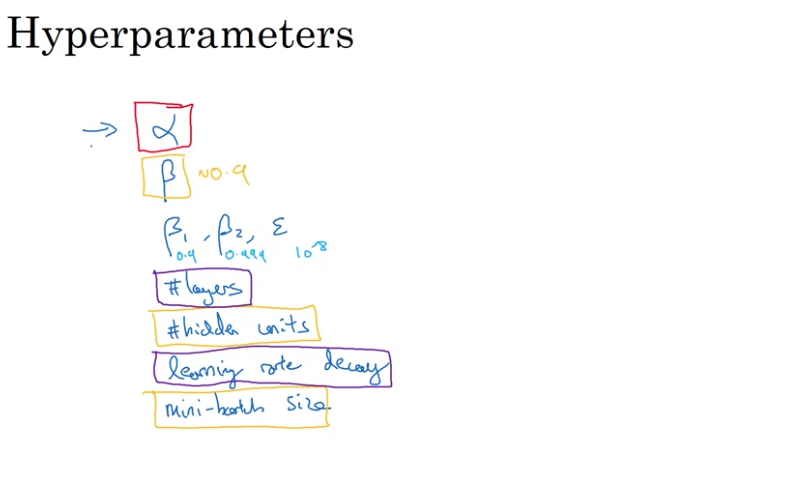 Hyperparameters
α
β ~0.9
β1, β2, ε
0.9 0.999 10^-8
#layers
#hidden units
learning rate decay
mini-batch size